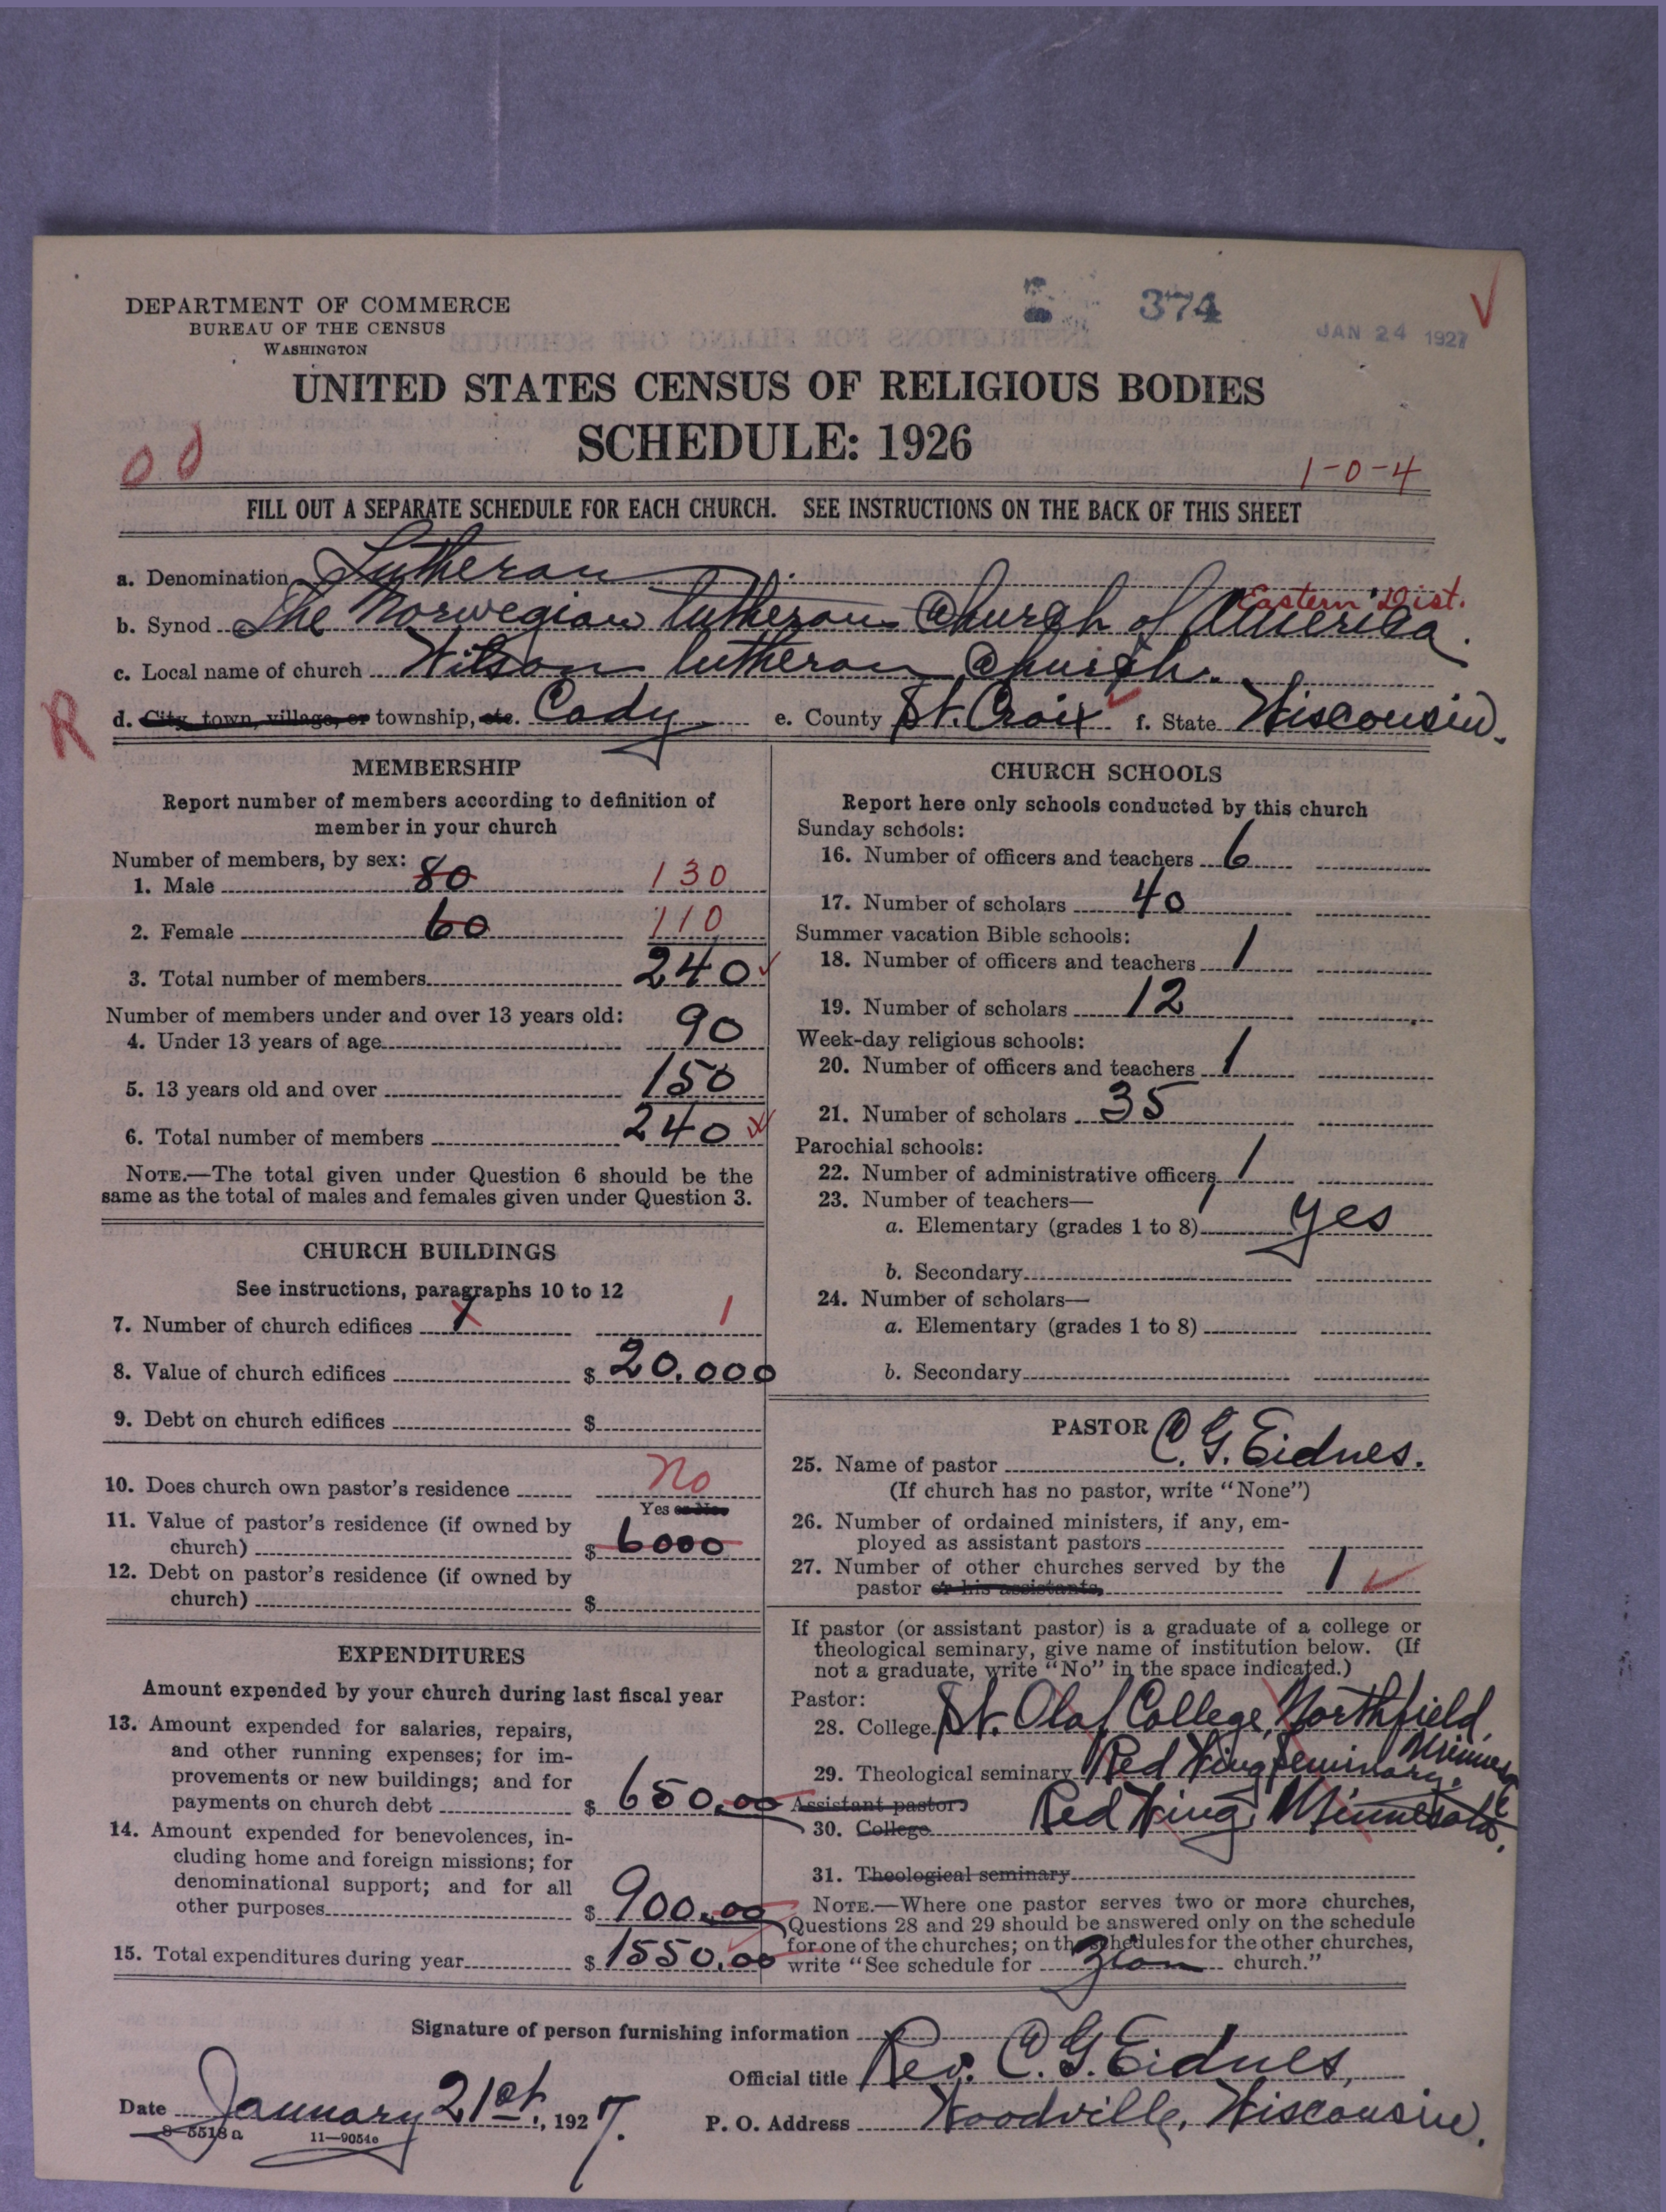 DEPARTMENT OF COMMERCE
BUREAU OF THE CENSUS
WASHINGTON
374
JAN 24 1927
UNITED STATES CENSUS OF RELIGIOUS BODIES
SCHEDULE: 1926
00
1-0-4
FILL OUT A SEPARATE SCHEDULE FOR EACH CHURCH. SEE INSTRUCTIONS ON THE BACK OF THIS SHEET
a. Denomination Lutheran
Eastern Dist.
b. Synod The Norwegian Lutheran Church of America.
c. Local name of church Wilson Lutheran Church.
R
d. City, town, village, or township, etc. Cady e. County St. Croix f. State Wisconsin.
MEMBERSHIP
Report number of members according to definition of
member in your church
Number of members, by sex:
1. Male 80 130
2. Female 60 110
3. Total number of members 240
Number of members under and over 13 years old:
4. Under 13 years of age 90
5. 13 years old and over 150
6. Total number of members 240
NOTE.—The total given under Question 6 should be the
same as the total of males and females given under Question 3.
CHURCH BUILDINGS
See instructions, paragraphs 10 to 12
7. Number of church edifices 1 1
8. Value of church edifices $ 20.000
9. Debt on church edifices $
10. Does church own pastor's residence No
Yes or No
11. Value of pastor's residence (if owned by
church) $ 6000
12. Debt on pastor's residence (if owned by
church) $
EXPENDITURES
Amount expended by your church during last fiscal year
13. Amount expended for salaries, repairs,
and other running expenses; for im-
provements or new buildings; and for
payments on church debt $ 650.00
14. Amount expended for benevolences, in-
cluding home and foreign missions; for
denominational support; and for all
other purposes $ 900.00
15. Total expenditures during year $ 1550.00
CHURCH SCHOOLS
Report here only schools conducted by this church
Sunday schools:
16. Number of officers and teachers 6
17. Number of scholars 40
Summer vacation Bible schools:
18. Number of officers and teachers 1
19. Number of scholars 12
Week-day religious schools:
20. Number of officers and teachers 1
21. Number of scholars 35
Parochial schools:
22. Number of administrative officers 1
23. Number of teachers—
a. Elementary (grades 1 to 8) yes
b. Secondary
24. Number of scholars—
a. Elementary (grades 1 to 8)
b. Secondary
PASTOR
25. Name of pastor C. G. Eidnes.
(If church has no pastor, write "None")
26. Number of ordained ministers, if any, em-
ployed as assistant pastors
27. Number of other churches served by the
pastor or his assistants, 1
If pastor (or assistant pastor) is a graduate of a college or
theological seminary, give name of institution below. (If
not a graduate, write "No" in the space indicated.)
Pastor:
28. College St. Olaf College, Northfield,
29. Theological seminary Red Wing Seminary,
Assistant pastor:
30. College Red Wing, Minnesota.
31. Theological seminary
NOTE.—Where one pastor serves two or more churches,
Questions 28 and 29 should be answered only on the schedule
for one of the churches; on the schedules for the other churches,
write "See schedule for Zion church."
Signature of person furnishing information
Official title Rev. C. G. Eidnes,
Date January 21st, 1927.
P. O. Address Woodville, Wisconsin.
8-5518a
11—9054e